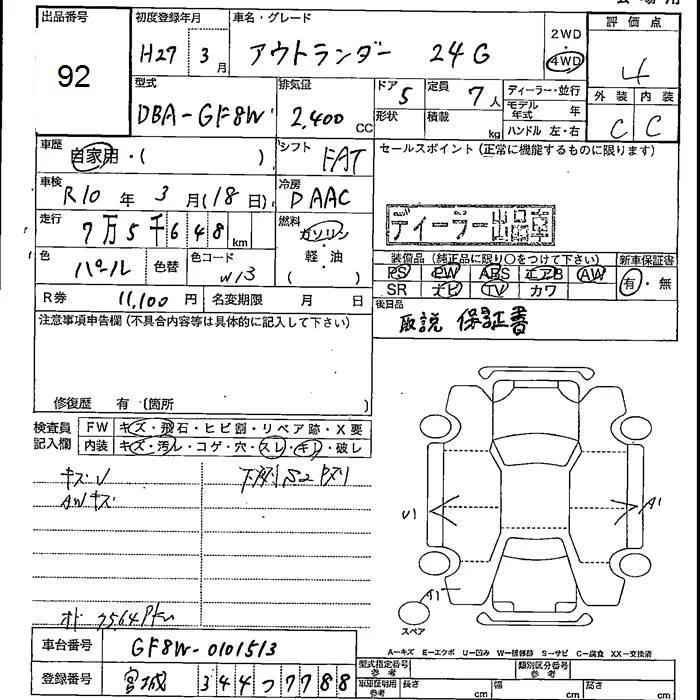 出品番号 初度登録年月 車名・グレード 評価点
92
H27 3月 アウトランダー 24G 2WD・4WD 4
型式 排気量 ドア 5 定員 7人 ディーラー・並行 外装 内装
DBA-GF8W 2,400 CC 形状 積載 kg モデル年式 年 C C
ハンドル 左・右
車歴 自家用・( ) シフト FAT セールスポイント(正常に機能するものに限ります)
車検 R10年 3月(18日) 冷房 D AAC
走行 7万5千648km 燃料 ガソリン 軽・油 ( )
ディーラー出品車
色 パール 色替 色コード W13
装備品(純正品に限り○をつけて下さい) 新車保証書
PS PW ABS エアB AW 有・無
SR ナビ TV カワ
R券 11,100円 名変期限 月 日
後日品
取説 保証書
注意事項申告欄(不具合内容等は具体的に記入して下さい)
修復歴 有(箇所 )
検査員記入欄 FW キズ・飛石・ヒビ割・リペア跡・X要
内装 キズ・汚レ・コゲ・穴・スレ・キレ・破レ
キズV
AWキズ
U1 A1
A1
スペア
A=キズ E=エクボ U=凹み W=補修跡 S=サビ C=腐食 XX=交換済
車台番号 GF8W-0101513
登録番号 宮城 344 7788
型式指定番号 参考 類別区分番号 参考
車車証明用 参考 長さ cm 幅 cm 高さ cm